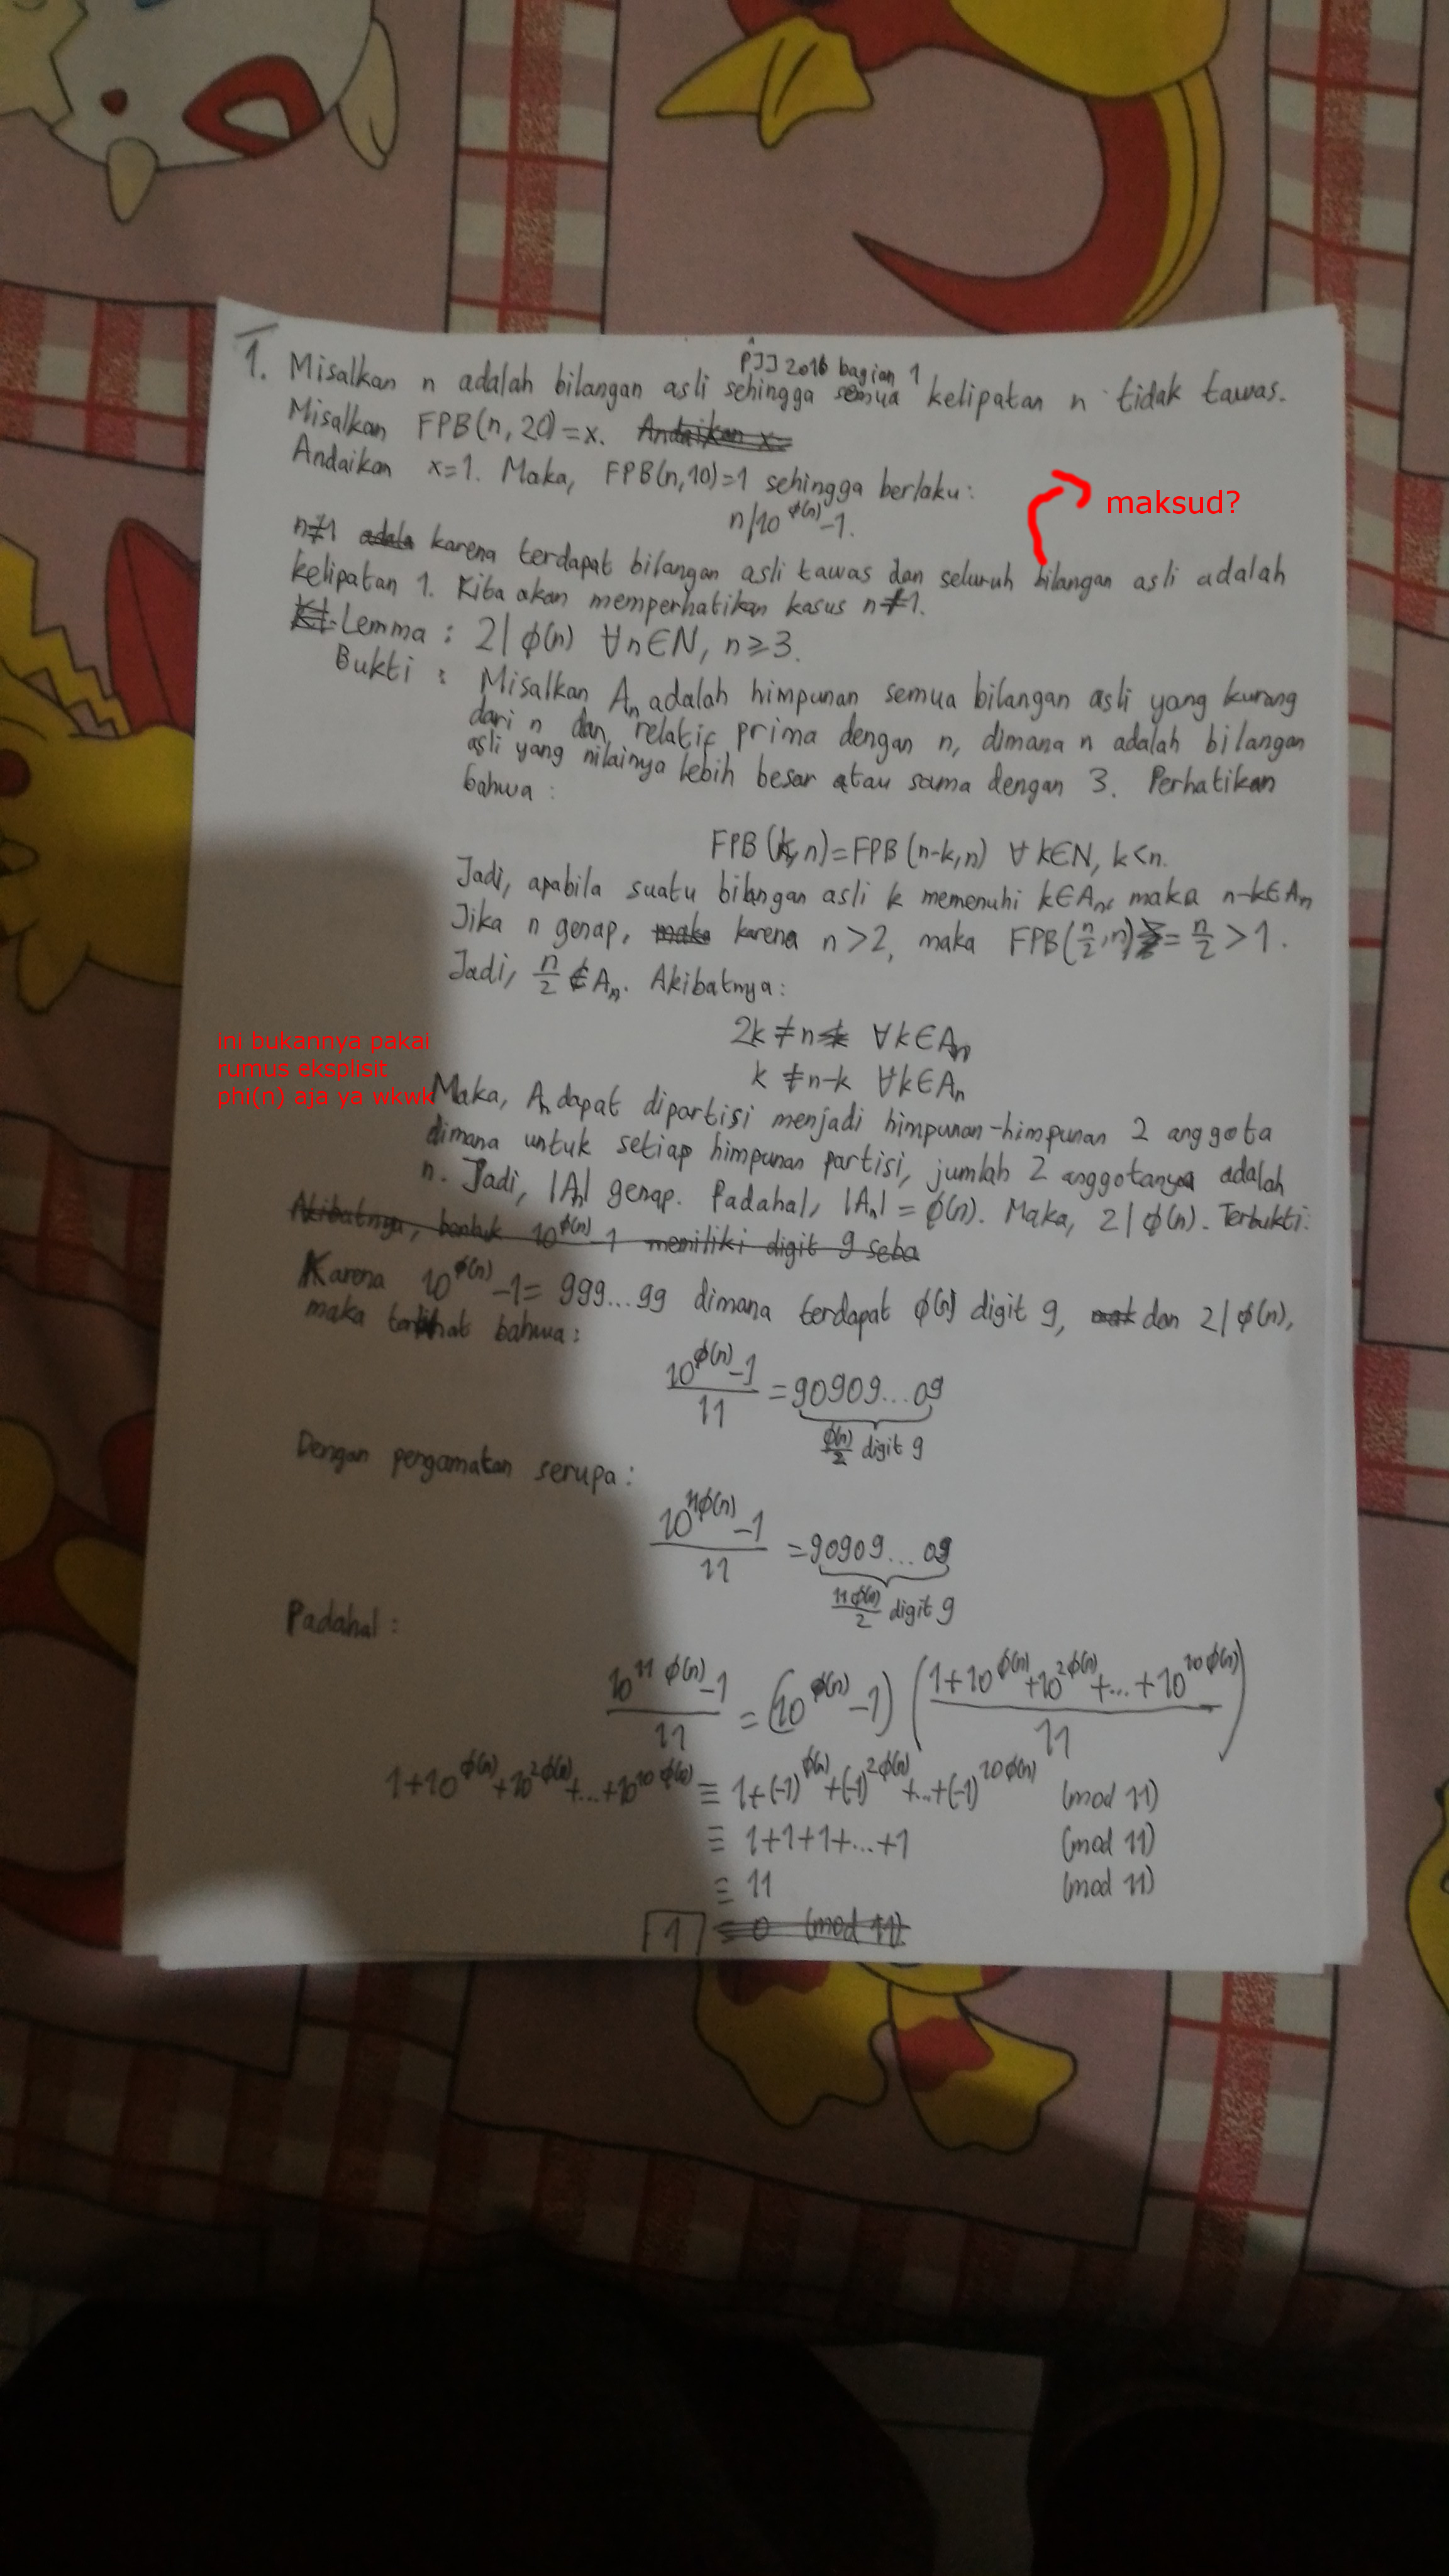 PJJ 2016 bagian 1
1. Misalkan n adalah bilangan asli sehingga semua kelipatan n tidak tawas.
Misalkan FPB(n, 20)=x. Andaikan x=
Andaikan x=1. Maka, FPB(n,10)=1 sehingga berlaku:
n|10^ϕ(n)-1.
maksud?
n≠1 karena terdapat bilangan asli tawas dan seluruh bilangan asli adalah
kelipatan 1. Kita akan memperhatikan kasus n≠1.
Lemma : 2|ϕ(n) ∀n∈N, n≥3.
Bukti : Misalkan Aₙ adalah himpunan semua bilangan asli yang kurang
dari n dan relatif prima dengan n, dimana n adalah bilangan
asli yang nilainya lebih besar atau sama dengan 3. Perhatikan
bahwa :
FPB(k,n)=FPB(n-k,n) ∀ k∈N, k<n.
Jadi, apabila suatu bilangan asli k memenuhi k∈Aₙ, maka n-k∈Aₙ
Jika n genap, maka karena n>2, maka FPB(n/2,n)=n/2>1.
Jadi, n/2∉Aₙ. Akibatnya:
2k≠n ∀k∈Aₙ
k≠n-k ∀k∈Aₙ
ini bukannya pakai
rumus eksplisit
phi(n) aja ya wkwk
Maka, Aₙ dapat dipartisi menjadi himpunan-himpunan 2 anggota
dimana untuk setiap himpunan partisi, jumlah 2 anggotanya adalah
n. Jadi, |Aₙ| genap. Padahal, |Aₙ|=ϕ(n). Maka, 2|ϕ(n). Terbukti.
Akibatnya, bentuk 10^ϕ(n)-1 memiliki digit 9 seba
Karena 10^ϕ(n)-1=999...99 dimana terdapat ϕ(n) digit 9, dan 2|ϕ(n),
maka terlihat bahwa:
(10^ϕ(n)-1)/11=90909...09
ϕ(n)/2 digit 9
Dengan pengamatan serupa:
(10^11ϕ(n)-1)/11=90909...09
11ϕ(n)/2 digit 9
Padahal:
(10^11ϕ(n)-1)/11=(10^ϕ(n)-1)((1+10^ϕ(n)+10^2ϕ(n)+...+10^10ϕ(n))/11)
1+10^ϕ(n)+10^2ϕ(n)+...+10^10ϕ(n)≡1+(-1)^ϕ(n)+(-1)^2ϕ(n)+...+(-1)^10ϕ(n) (mod 11)
≡1+1+1+...+1 (mod 11)
≡11 (mod 11)
1 ≡0 (mod 11)